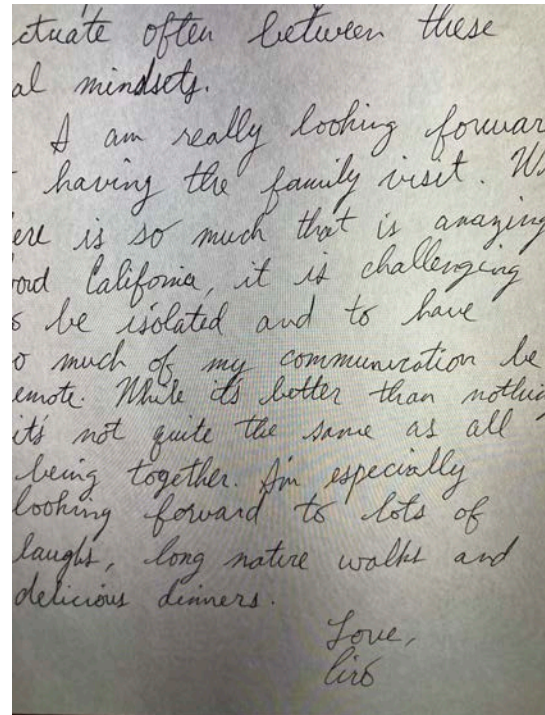 ctuate often between these
al mindsets.
I am really looking forwar
having the family visit. W
ere is so much that is amazing
out California, it is challenging
o be isolated and to have
o much of my communication be
emote. While it's better than nothin
it's not quite the same as all
being together. I'm especially
looking forward to lots of
laughs, long nature walks and
delicious dinners.
Love,
Ciro